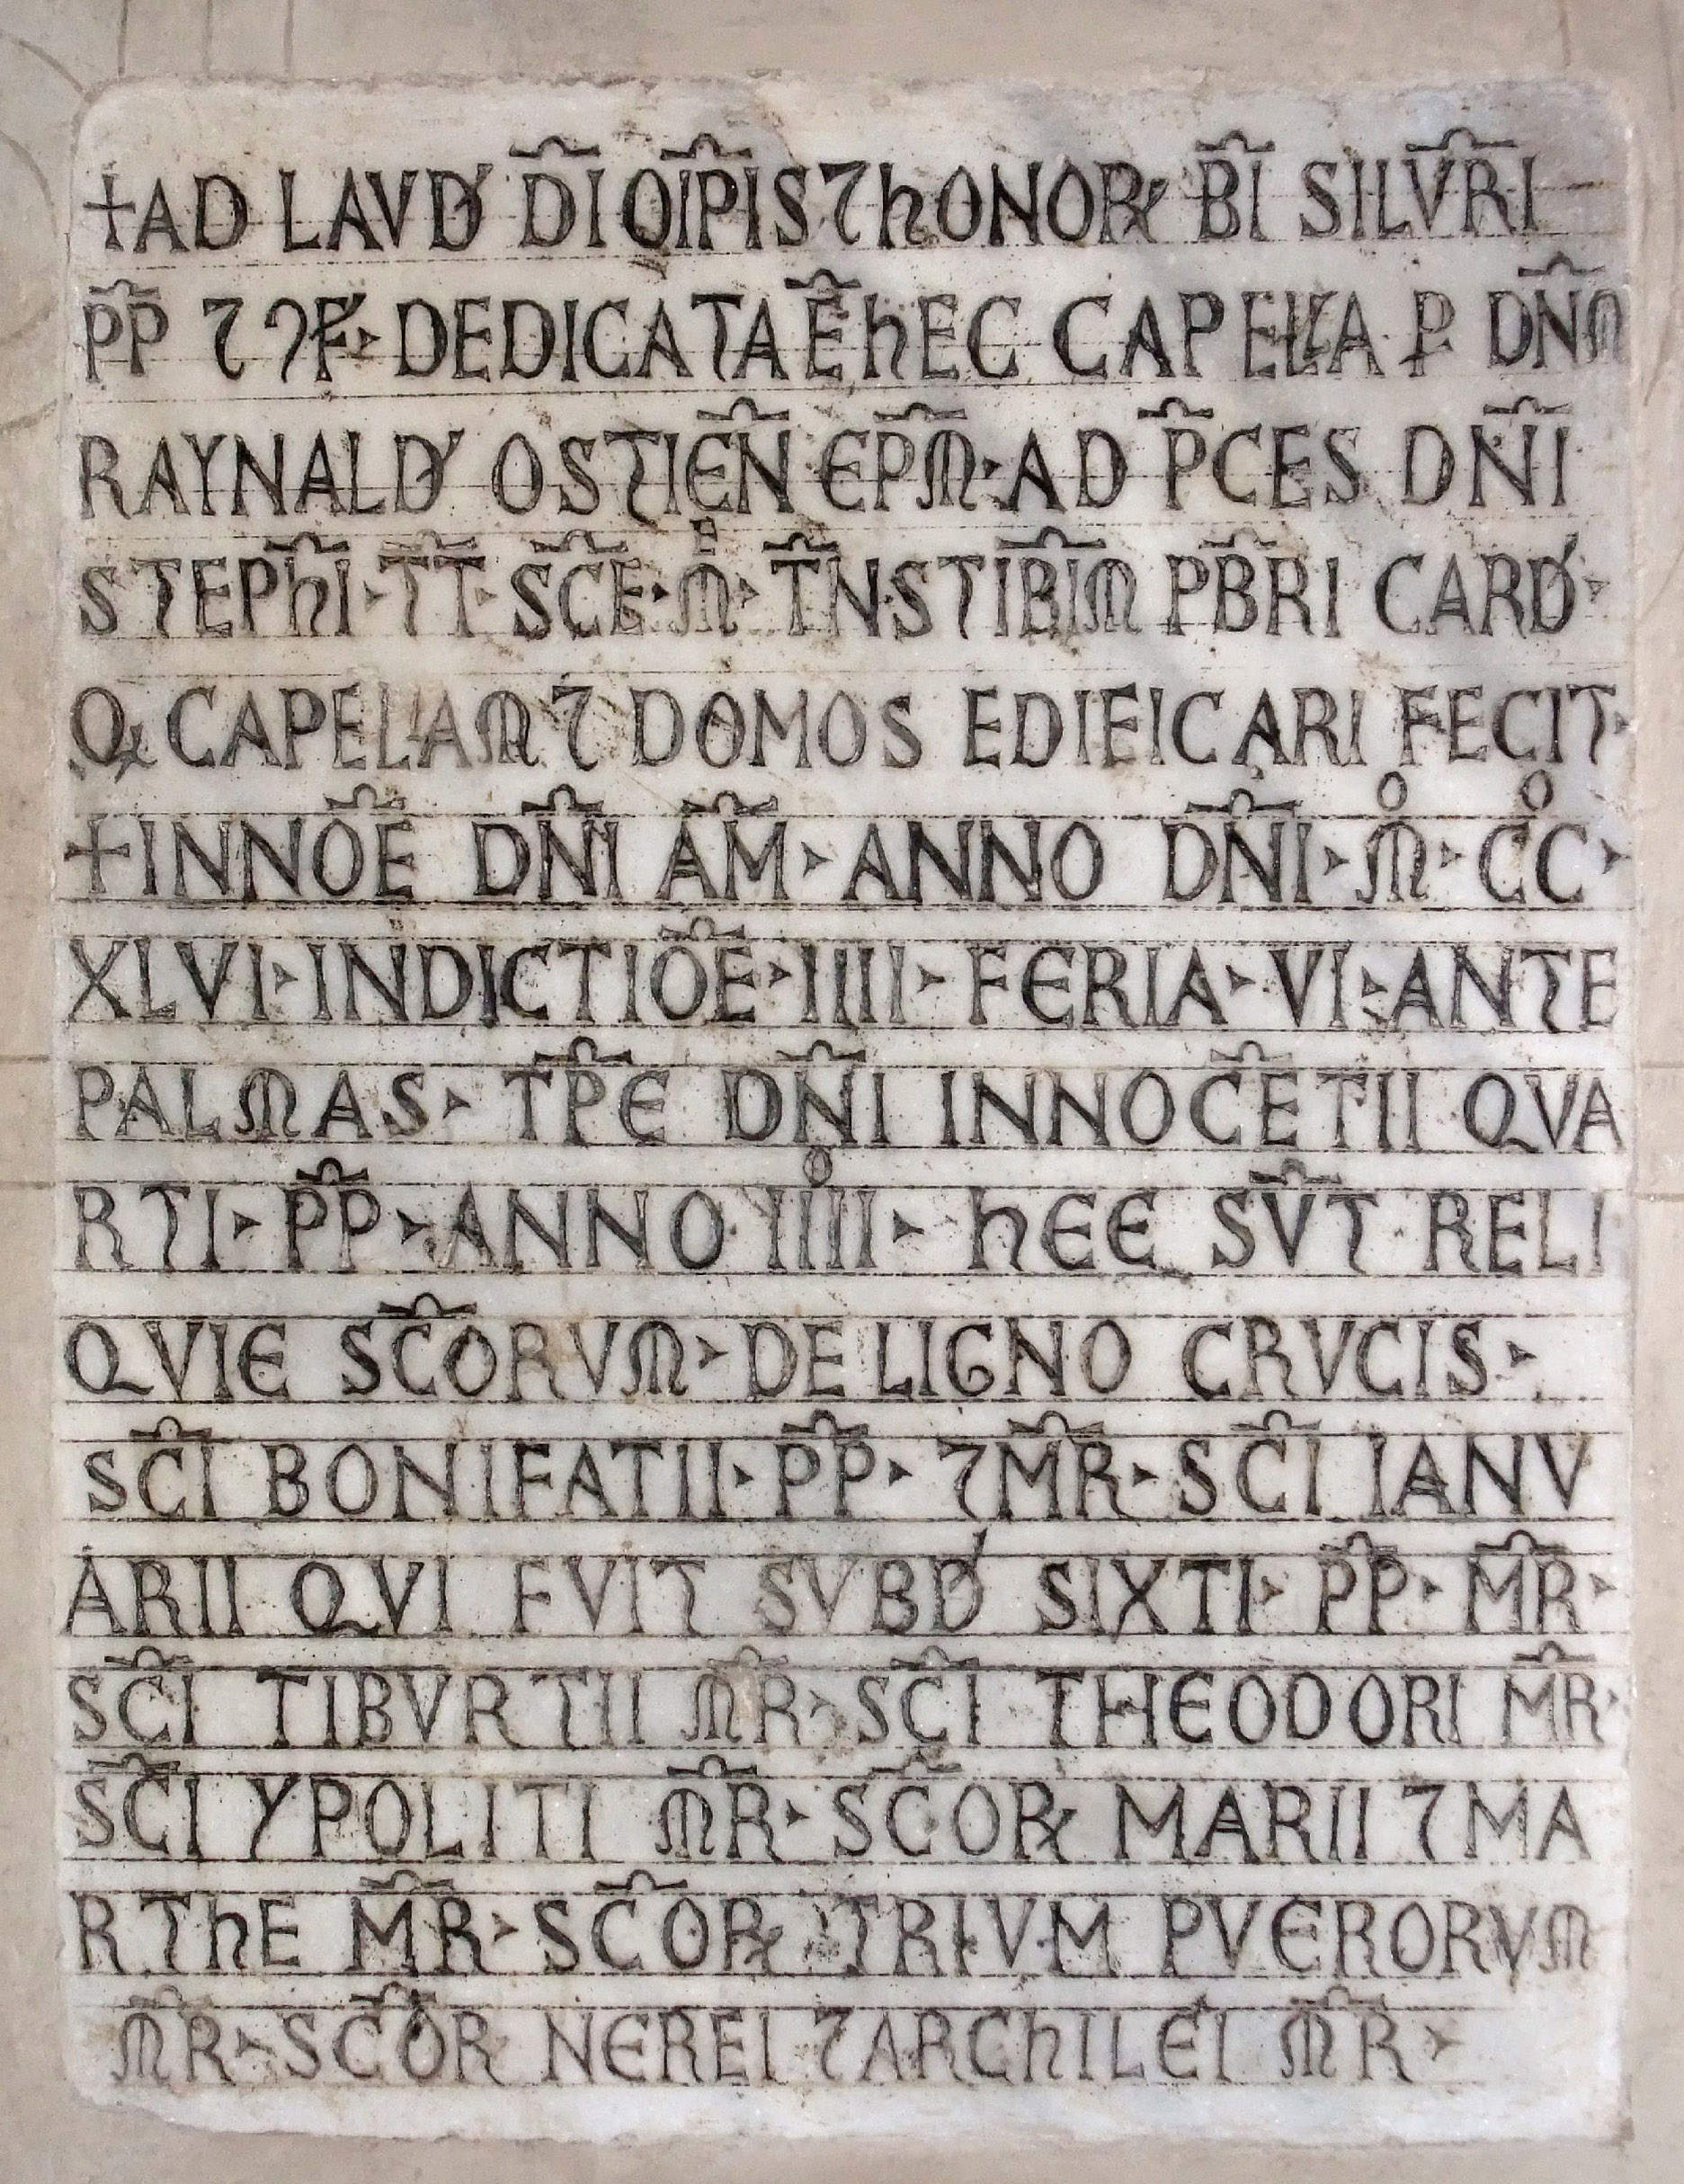 +AD LAVĐ D̅I OI̅PIS ⁊ hONOꝜ B̅I SILV̅RI
P̅P ⁊ ꝯF· DEDICATA E̅ hEC CAPELLA P̱ DN̅M
RAYNALĐ OSTIEN̅ EPM̅·AD P̅CES DN̅I
STEPhI̅·T̅T·SC̅E·Mͤ·T̅NSTIBI̅M PB̅RI CARĐ·
Qꝫ CAPELLAM ⁊ DOMOS EDIFICARI FECIT·
+INNOE̅ DN̅I AM̅·ANNO DN̅I·M̊·CC̊·
XLVI·INDICTIOE̅·IIII·FERIA·VI·ANTE
PALMAS·TP̅E DN̅I INNOCE̅TII QVA
RTI·P̅P·ANNO IIII̊·hEE SV̅T RELI
QVIE SC̅ORVM·DE LIGNO CRVCIS·
SC̅I BONIFATII·P̅P·⁊ M̅R·SC̅I IANV
ARII QVI FVIT SVBĐ SIXTI·P̅P·M̅R·
SC̅I TIBVRTII M̅R·SC̅I THEODORI M̅R·
SC̅I YPOLITI M̅R·SC̅OꝜ MARII ⁊ MA
RThE M̅R·SC̅OꝜ TRIVM PVERORVM
M̅R·SC̅OR NEREI ⁊ ARChILEI M̅R·